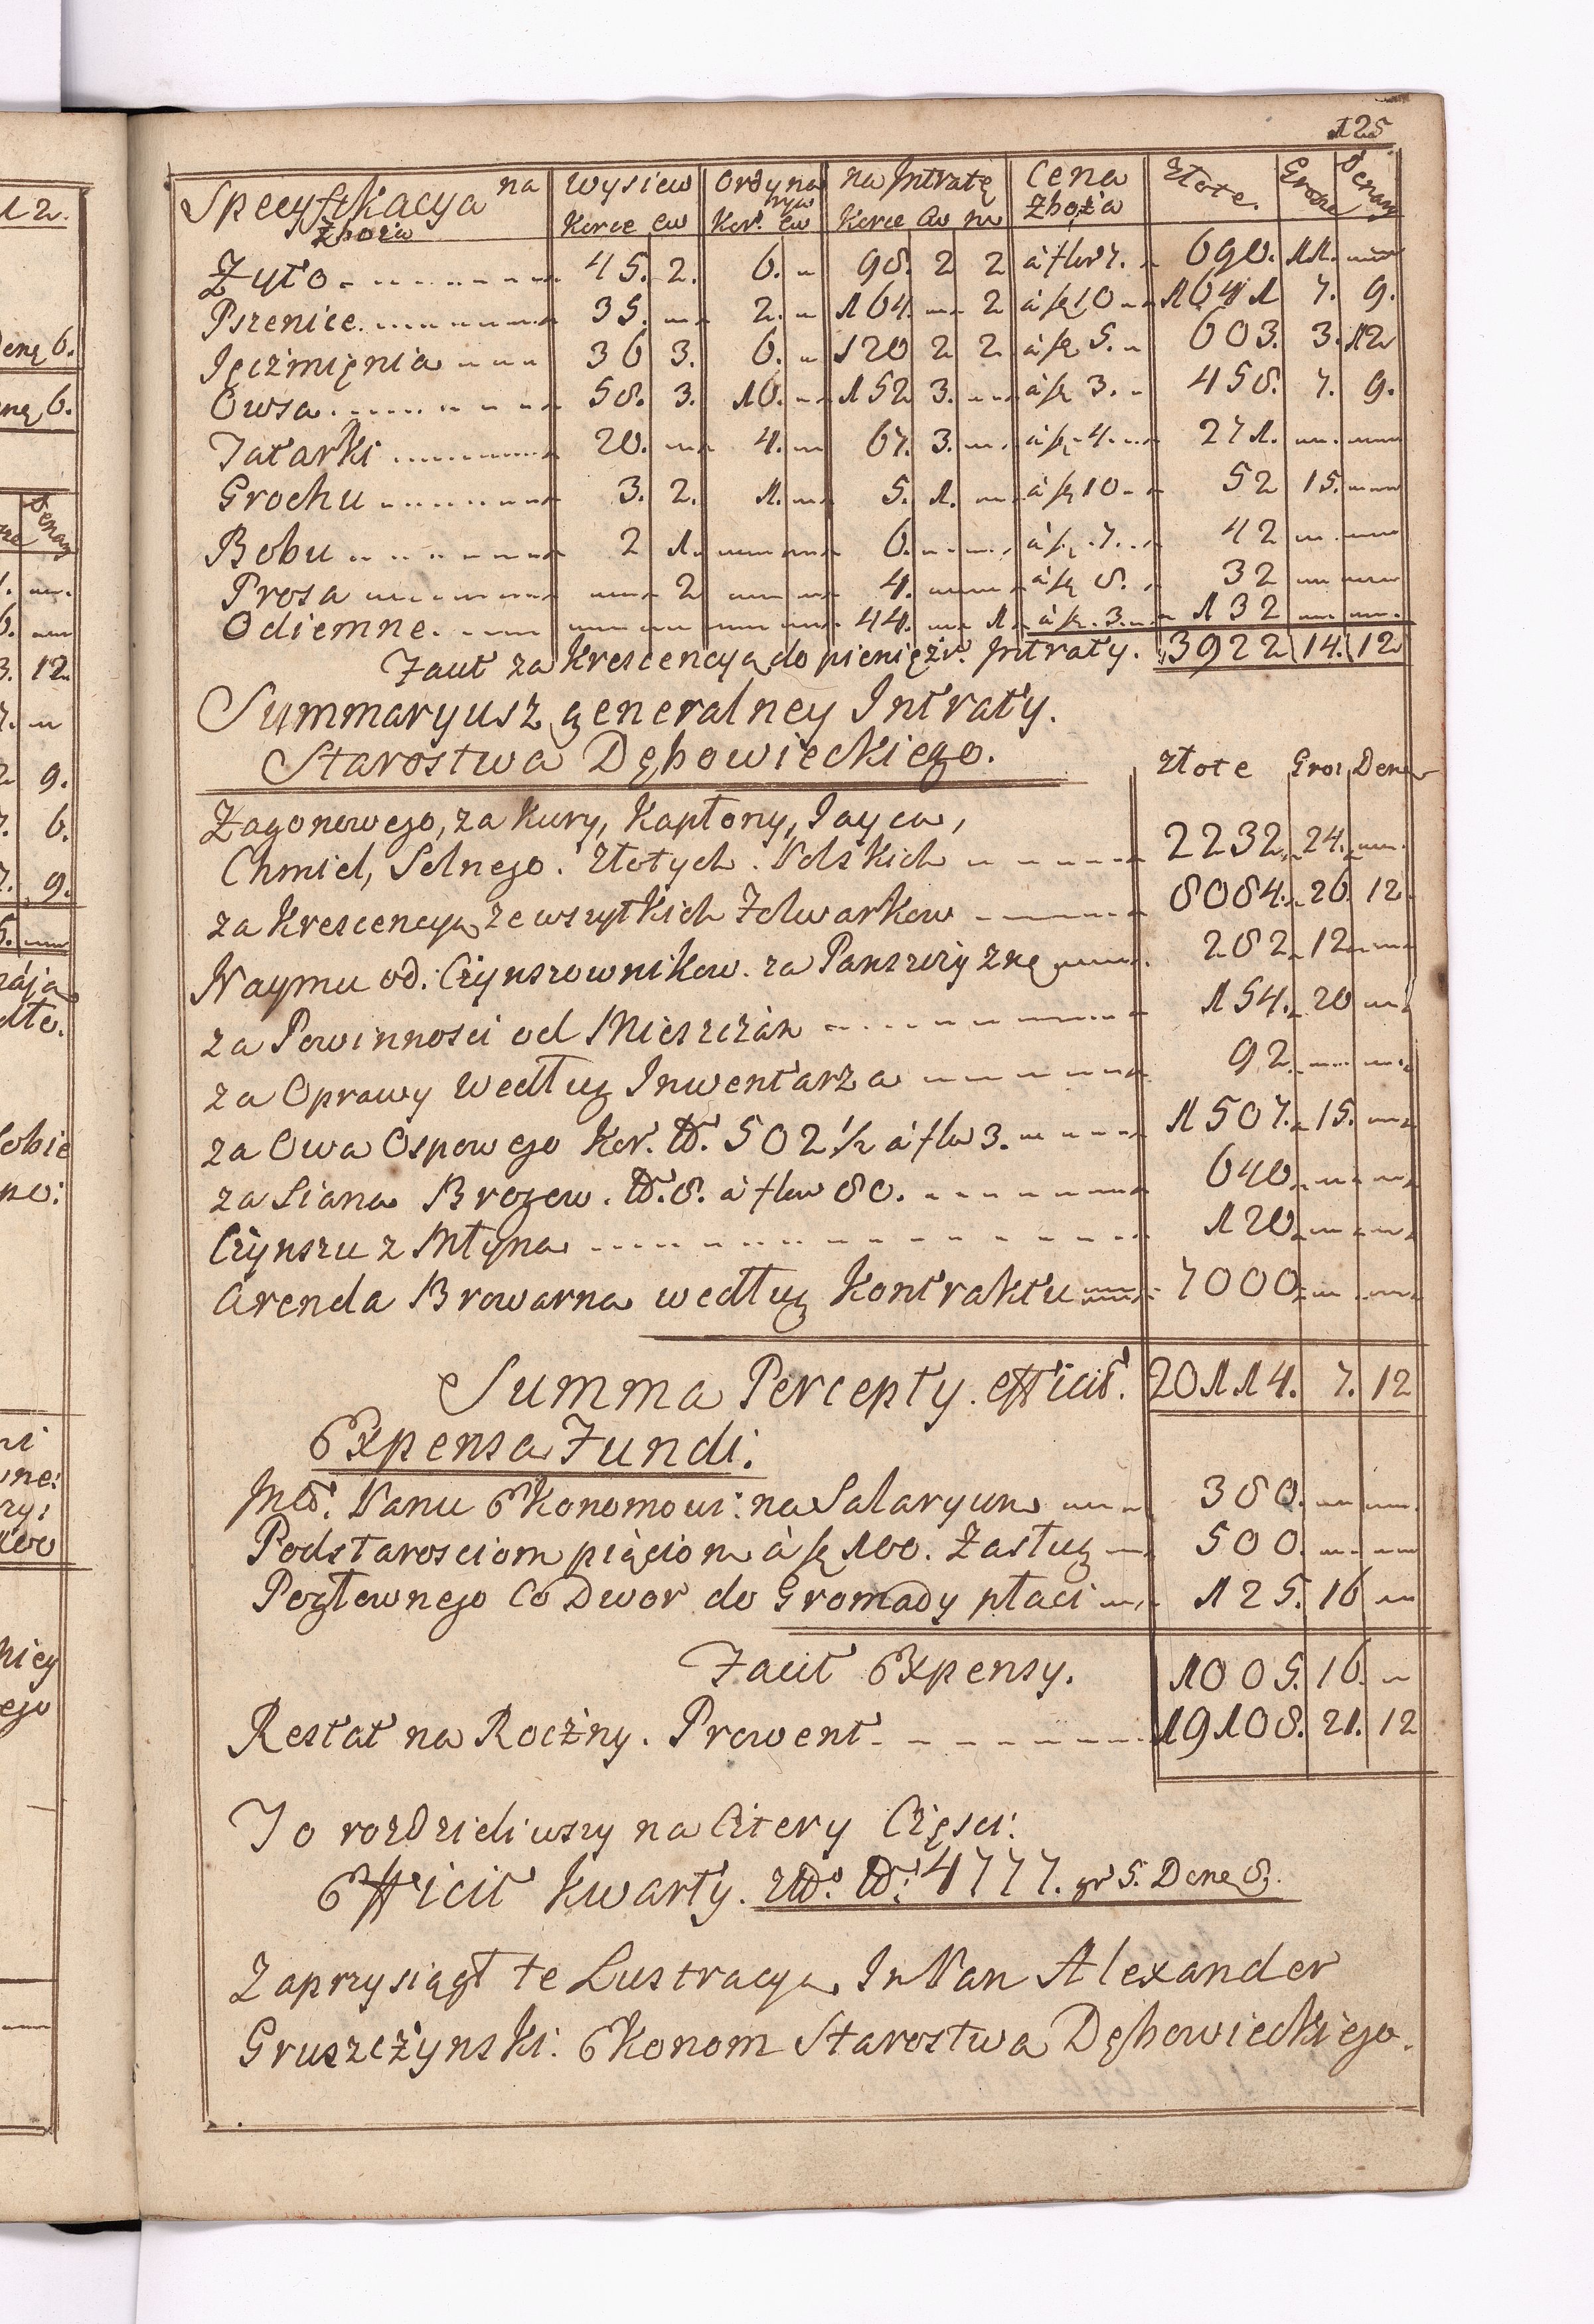 125
Specyfikacya na Wysiew Ordyna na Intratę Cena Złote. Grosze Denary
Zboża Korce ćw rya Kor. ćw Korce ćw Zboża
Żyto 45. 2. 6. 98. 2 2 à flor 7. 690. 11.
Pszenice 35. 2. 164. 2 à fl 10 1641 7. 9.
Ięczmięnia 36 3. 6. 120 2 2 à fl 5. 603. 3. 12
Owsa 58. 3. 16. 152 3. à fl 3. 458. 7. 9.
Tatarki 20. 4. 67. 3. à fl 4. 271.
Grochu 3. 2. 1. 5. 1. à fl 10 52 15.
Bobu 2 1. 6. à fl 7. 42
Prosa 2 4. à fl 8. 32
Odiemne. 44. 1 à fl 3. 132
Facit za Krescencyą do pieniężn. Intraty. 3922 14. 12
Summaryusz generalney Intraty.
Starostwa Dębowieckiego.
Złote Grosz Denar
Zagonowego, za Kury, Kapłony, Jayca,
Chmiel, Solnego. Złotych. Polskich 2232. 24.
za Krescencyą ze wszytkich Folwarkow 8084. 26. 12
Naymu od. Czynszownikow. za Panszczyznę 282. 12
za Powinnosci od Mieszczán 154. 20
za Oprawy Według Inwentarza 92
za Owsa Ospowego Kor. No. 502 ½ à flor 3. 1507. 15.
za Siana Brogow. No. 8. à flor 80. 640.
Czynszu z Młyna 120
Arenda Browarna według Kontraktu 7000
Summa Percepty. efficit. 20114. 7. 12
Expensa Fundi.
Panu Ekonomowi: na Salaryum 380.
Podstarosciom pięciom à fl 100. Zasług 500.
Pogłownego Co Dwor do Gromady płaci 125. 16
Facit Expensy. 1005. 16.
Restat na Roczny. Prowent 19108. 21. 12
To rozdzieliwszy na Cztery Częsci:
Efficit Kwarty. Zło. No. 4777. gr 5. Dene 8.
Zaprzysiągł te Lustracyą Im Pan Alexander
Gruszczynski: Ekonom Starostwa Dębowieckiego.